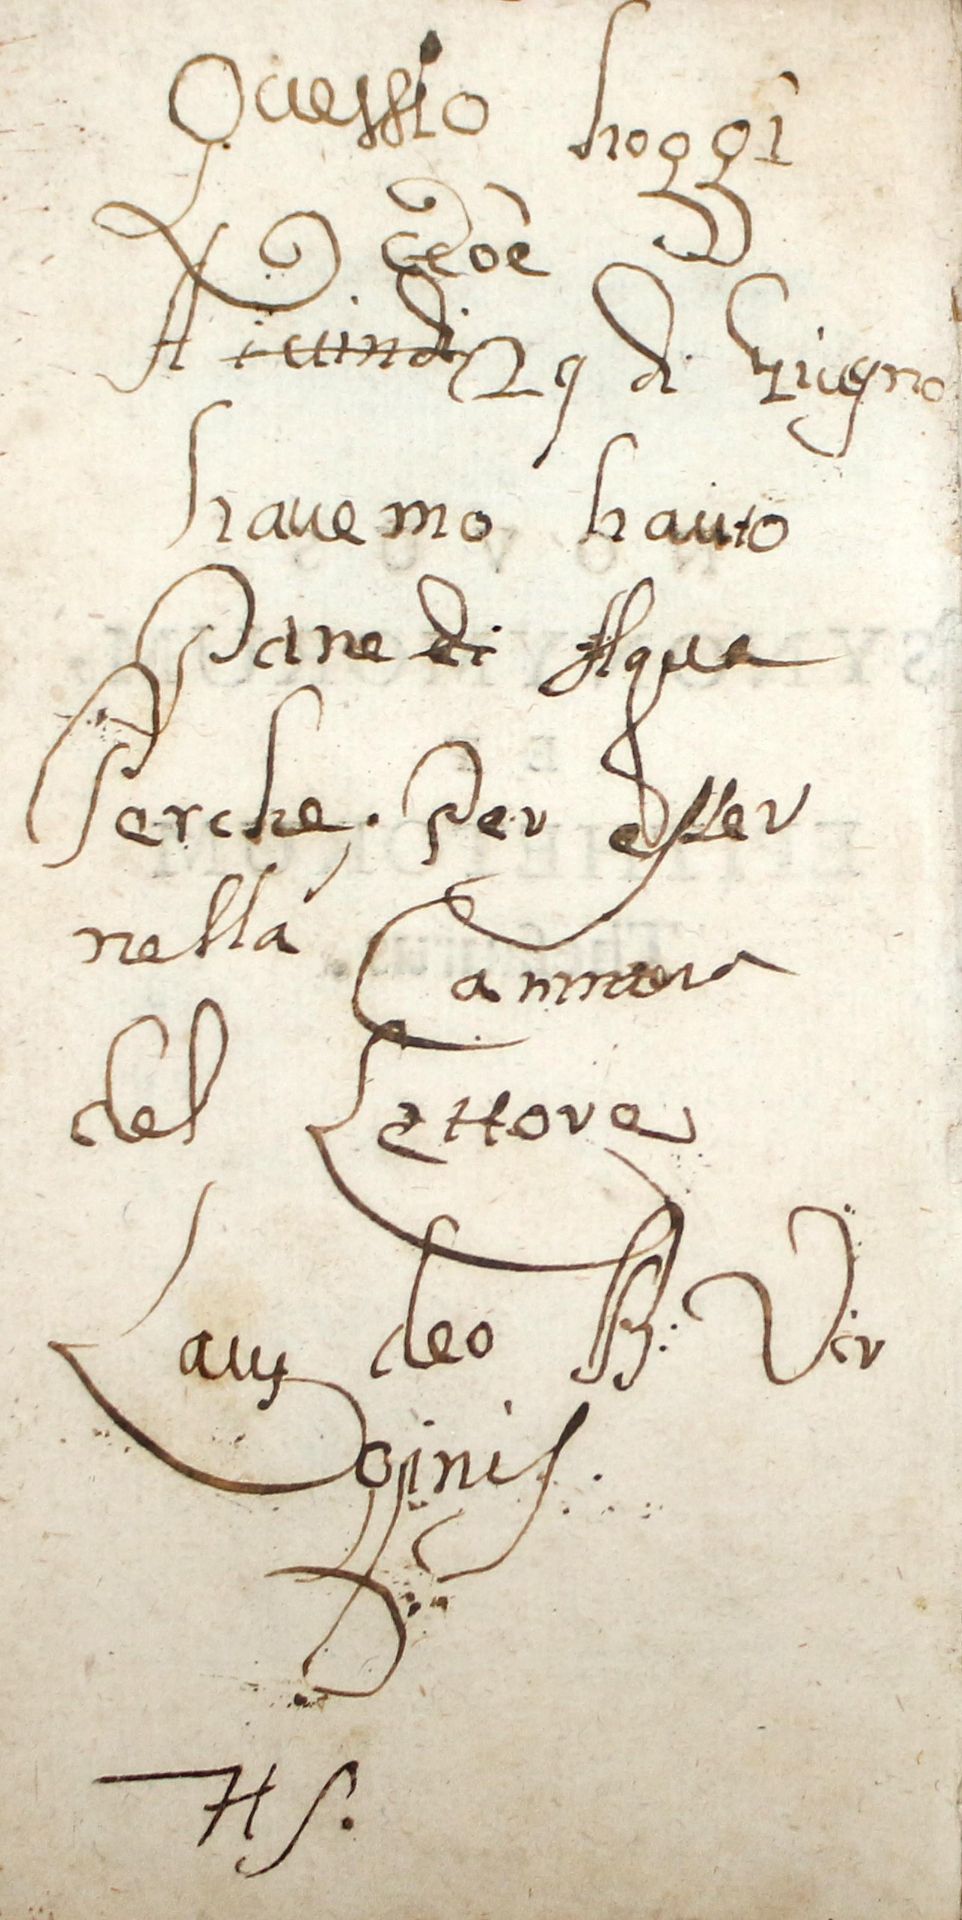 Questo hoggi
cioè
A 29 di Giugno
havemo hauto
Pane di Aqua
Perche. Per esser
nella Cammera
del Lettore
Laus deo B. Vir
ginis.
HS.